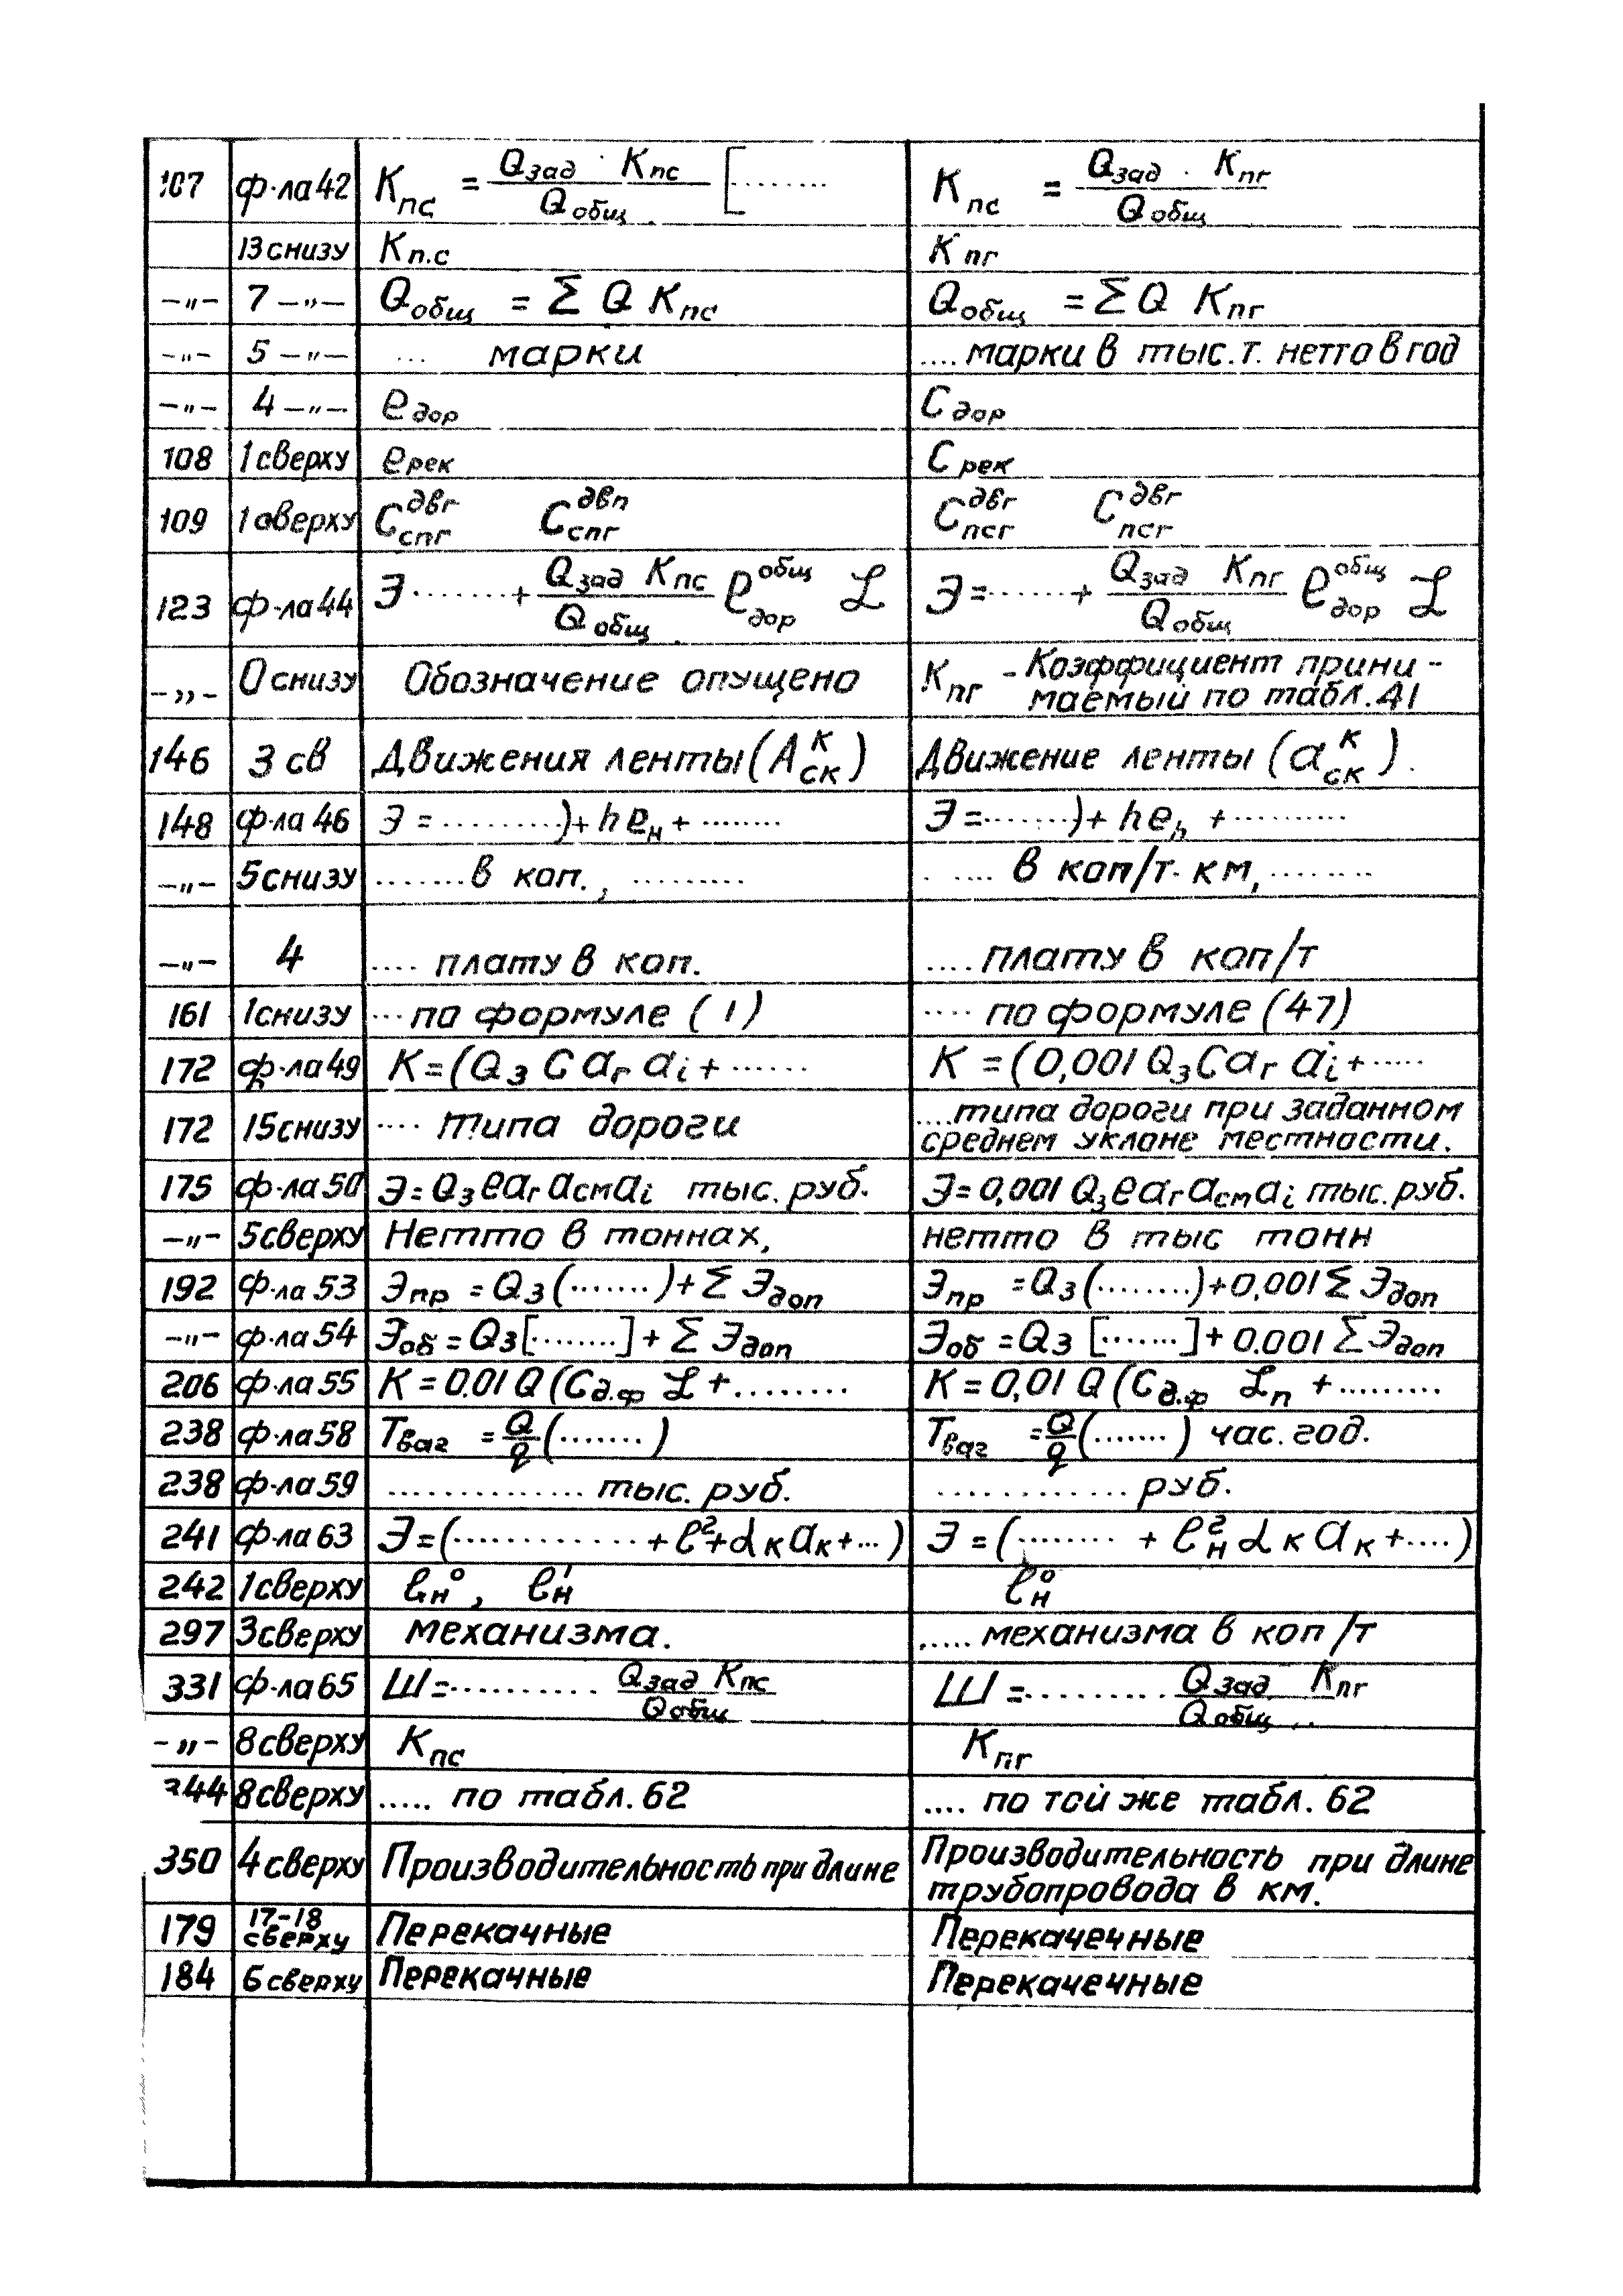 107 ф-ла 42 Kпс = Qзад · Kпс / Qобщ [........ Kпс = Qзад · Kпг / Qобщ
13 снизу Kп.с Kпг
—"— 7 —"— Qобщ = Σ Q Kпс Qобщ = Σ Q Kпг
—"— 5 —"— ... марки .... марки в тыс. т. нетто в год
—"— 4 —"— eдор Cдор
108 1 сверху eрек Cрек
109 1 сверху Cспг^двг Cспг^двп Cпсг^двг Cпсг^двг
123 ф-ла 44 Э ....... + Qзад Kпс / Qобщ eдор^общ ℒ Э = ...... + Qзад Kпг / Qобщ eдор^общ ℒ
—"— 0 снизу Обозначение опущено Kпг - Коэффициент прини-
маемый по табл. 41
146 3 св Движения ленты (Aск^к) Движение ленты (aск^к).
148 ф-ла 46 Э = .........) + h eн + ....... Э = .......) + h eh + ..........
—"— 5 снизу ....... в коп., ......... .... в коп/т·км, ........
—"— 4 .... плату в коп. .... плату в коп/т
161 1 снизу ... по формуле (1) .... по формуле (47)
172 ф-ла 49 K = (Qз C aг ai + ...... K = (0,001 Qз C aг ai + .....
172 15 снизу .... типа дороги .... типа дороги при заданном
среднем уклоне местности.
175 ф-ла 50 Э = Qз e aг aсм ai тыс. руб. Э = 0,001 Qз e aг aсм ai тыс. руб.
—"— 5 сверху Нетто в тоннах, нетто в тыс тонн
192 ф-ла 53 Эпр = Qз (.......) + Σ Эдоп Эпр = Qз (........) + 0,001 Σ Эдоп
—"— ф-ла 54 Эоб = Qз [........] + Σ Эдоп Эоб = Qз [.......] + 0.001 Σ Эдоп
206 ф-ла 55 K = 0.01 Q (Cд.ф ℒ + ........ K = 0,01 Q (Cд.ф ℒп + .........
238 ф-ла 58 Tваг = Q/q (.......) Tваг = Q/q (.......) час. год.
238 ф-ла 59 .............. тыс. руб. ............. руб.
241 ф-ла 63 Э = (............. + ℓ² + α к aк + ...) Э = (......... + ℓн² α к aк + ....)
242 1 сверху ℓн°, ℓн' ℓн°
297 3 сверху механизма. ..... механизма в коп/т
331 ф-ла 65 Ш = .......... Qзад Kпс / Qобщ Ш = ......... Qзад Kпг / Qобщ
—"— 8 сверху Kпс Kпг
344 8 сверху ..... по табл. 62 .... по той же табл. 62
350 4 сверху Производительность при длине Производительность при длине
трубопровода в км.
179 17-18 сверху Перекачные Перекачечные
184 6 сверху Перекачные Перекачечные